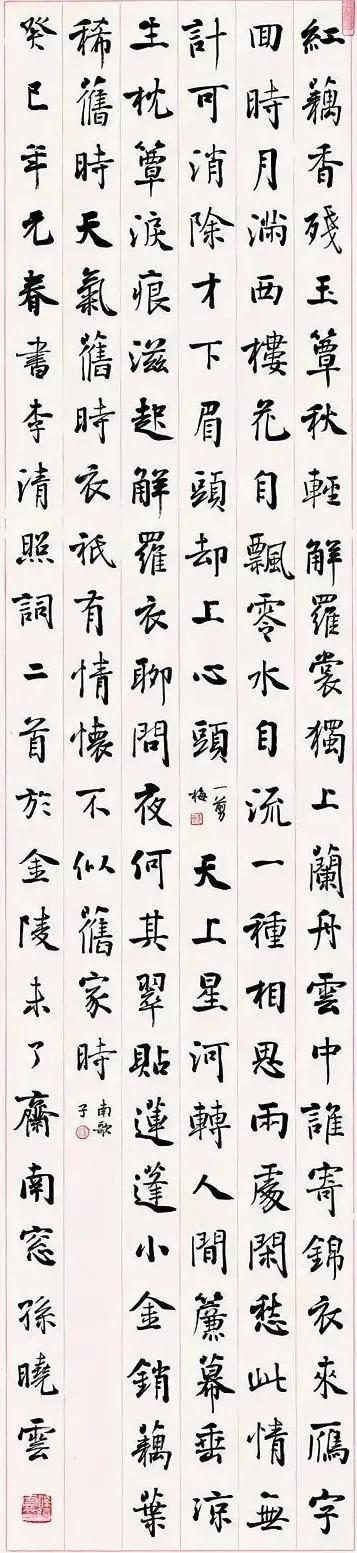 紅藕香殘玉簟秋輕解羅裳獨上蘭舟雲中誰寄錦衣來雁字
回時月滿西樓花自飄零水自流一種相思兩處閑愁此情無
計可消除才下眉頭却上心頭一剪梅天上星河轉人間簾幕垂涼
生枕簟淚痕滋起解羅衣聊問夜何其翠貼蓮蓬小金銷藕葉
稀舊時天氣舊時衣祇有情懷不似舊家時南歌子
癸巳年元春書李清照詞二首於金陵未了齋南窓孫曉雲